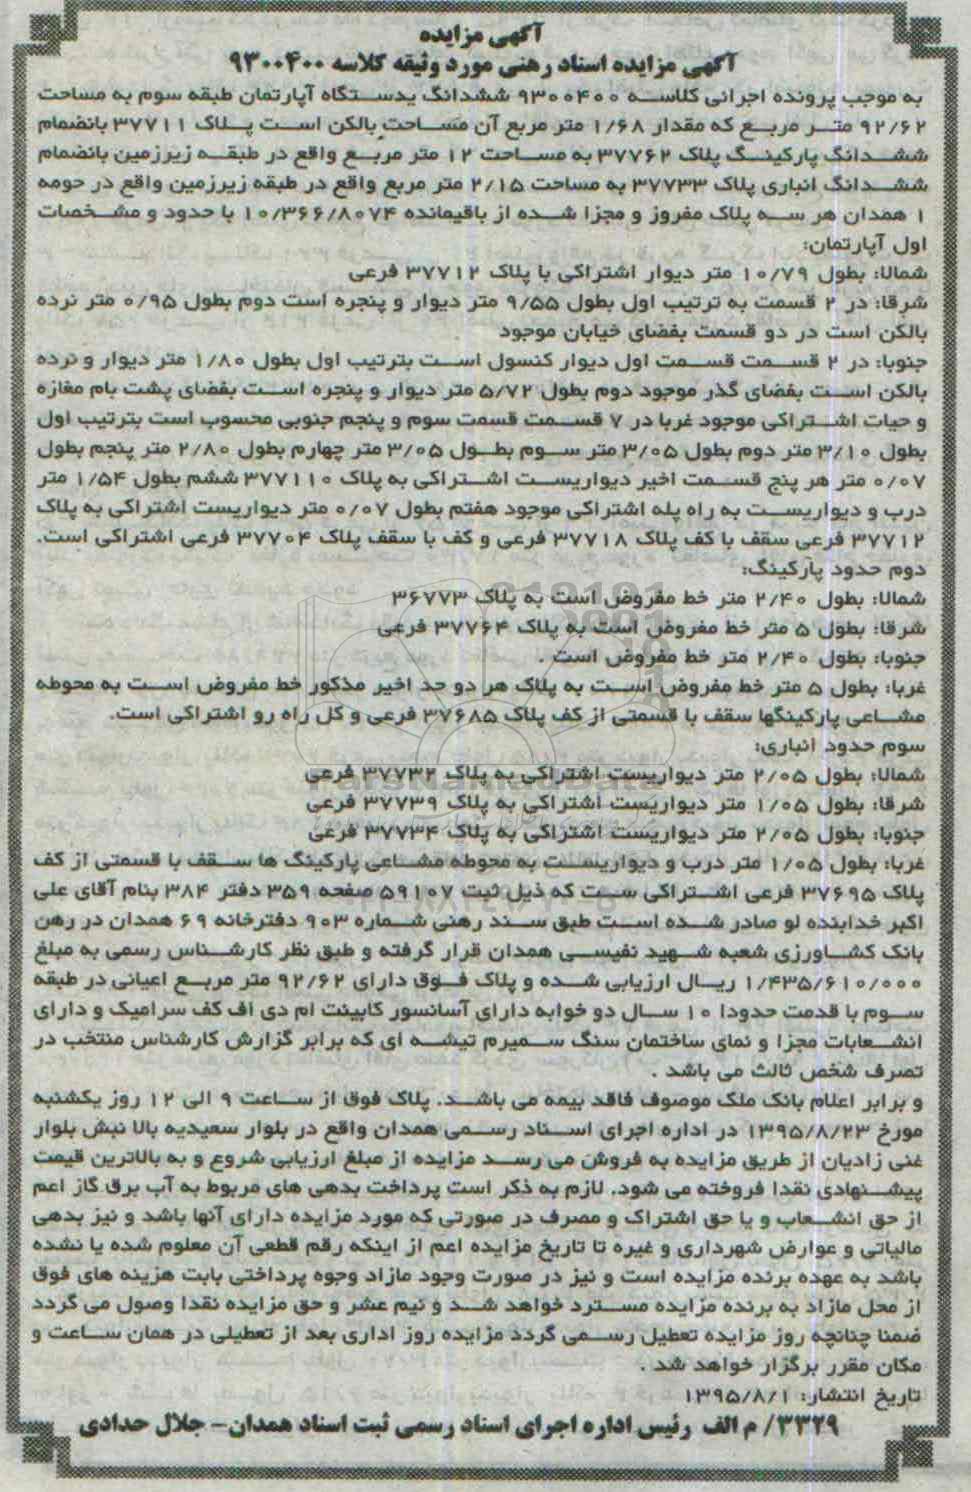 آگهی مزایده
آگهی مزایده اسناد رهنی مورد وثیقه کلاسه ۹۳۰۰۴۰۰
به موجب پرونده اجرائی کلاسه ۹۳۰۰۴۰۰ ششدانگ یدستگاه آپارتمان طبقه سوم به مساحت
۹۲/۶۲ متر مربع که مقدار ۱/۶۸ متر مربع آن مساحت بالکن است پلاک ۳۷۷۱۱ بانضمام
ششدانگ پارکینگ پلاک ۳۷۷۶۲ به مساحت ۱۲ متر مربع واقع در طبقه زیرزمین بانضمام
ششدانگ انباری پلاک ۳۷۷۳۳ به مساحت ۲/۱۵ متر مربع واقع در طبقه زیرزمین واقع در حومه
۱ همدان هر سه پلاک مفروز و مجزا شده از باقیمانده ۱۰/۳۶۶/۸۰۷۴ با حدود و مشخصات
اول آپارتمان:
شمالا: بطول ۱۰/۷۹ متر دیوار اشتراکی با پلاک ۳۷۷۱۲ فرعی
شرقا: در ۲ قسمت به ترتیب اول بطول ۹/۵۵ متر دیوار و پنجره است دوم بطول ۰/۹۵ متر نرده
بالکن است در دو قسمت بفضای خیابان موجود
جنوبا: در ۲ قسمت قسمت اول دیوار کنسول است بترتیب اول بطول ۱/۸۰ متر دیوار و نرده
بالکن است بفضای گذر موجود دوم بطول ۵/۷۲ متر دیوار و پنجره است بفضای پشت بام مغازه
و حیات اشتراکی موجود غربا در ۷ قسمت قسمت سوم و پنجم جنوبی محسوب است بترتیب اول
بطول ۳/۱۰ متر دوم بطول ۳/۰۵ متر سوم بطول ۳/۰۵ متر چهارم بطول ۲/۸۰ متر پنجم بطول
۰/۰۷ متر هر پنج قسمت اخیر دیواریست اشتراکی به پلاک ۳۷۷۱۱۰ ششم بطول ۱/۵۴ متر
درب و دیواریست به راه پله اشتراکی موجود هفتم بطول ۰/۰۷ متر دیواریست اشتراکی به پلاک
۳۷۷۱۲ فرعی سقف با کف پلاک ۳۷۷۱۸ فرعی و کف با سقف پلاک ۳۷۷۰۴ فرعی اشتراکی است.
دوم حدود پارکینگ:
شمالا: بطول ۲/۴۰ متر خط مفروض است به پلاک ۳۶۷۷۳
شرقا: بطول ۵ متر خط مفروض است به پلاک ۳۷۷۶۴ فرعی
جنوبا: بطول ۲/۴۰ متر خط مفروض است .
غربا: بطول ۵ متر خط مفروض است به پلاک هر دو حد اخیر مذکور خط مفروض است به محوطه
مشاعی پارکینگها سقف با قسمتی از کف پلاک ۳۷۶۸۵ فرعی و کل راه رو اشتراکی است.
سوم حدود انباری:
شمالا: بطول ۲/۰۵ متر دیواریست اشتراکی به پلاک ۳۷۷۳۲ فرعی
شرقا: بطول ۱/۰۵ متر دیواریست اشتراکی به پلاک ۳۷۷۳۹ فرعی
جنوبا: بطول ۲/۰۵ متر دیواریست اشتراکی به پلاک ۳۷۷۳۴ فرعی
غربا: بطول ۱/۰۵ متر درب و دیواریست به محوطه مشاعی پارکینگ ها سقف با قسمتی از کف
پلاک ۳۷۶۹۵ فرعی اشتراکی ست که ذیل ثبت ۵۹۱۰۷ صفحه ۳۵۹ دفتر ۳۸۴ بنام آقای علی
اکبر خدابنده لو صادر شده است طبق سند رهنی شماره ۹۰۳ دفترخانه ۶۹ همدان در رهن
بانک کشاورزی شعبه شهید نفیسی همدان قرار گرفته و طبق نظر کارشناس رسمی به مبلغ
۱/۴۳۵/۶۱۰/۰۰۰ ریال ارزیابی شده و پلاک فوق دارای ۹۲/۶۲ متر مربع اعیانی در طبقه
سوم با قدمت حدودا ۱۰ سال دو خوابه دارای آسانسور کابینت ام دی اف کف سرامیک و دارای
انشعابات مجزا و نمای ساختمان سنگ سمیرم تیشه ای که برابر گزارش کارشناس منتخب در
تصرف شخص ثالث می باشد .
و برابر اعلام بانک ملک موصوف فاقد بیمه می باشد. پلاک فوق از ساعت ۹ الی ۱۲ روز یکشنبه
مورخ ۱۳۹۵/۸/۲۳ در اداره اجرای اسناد رسمی همدان واقع در بلوار سعیدیه بالا نبش بلوار
غنی زادیان از طریق مزایده به فروش می رسد مزایده از مبلغ ارزیابی شروع و به بالاترین قیمت
پیشنهادی نقدا فروخته می شود. لازم به ذکر است پرداخت بدهی های مربوط به آب برق گاز اعم
از حق انشعاب و یا حق اشتراک و مصرف در صورتی که مورد مزایده دارای آنها باشد و نیز بدهی
مالیاتی و عوارض شهرداری و غیره تا تاریخ مزایده اعم از اینکه رقم قطعی آن معلوم شده یا نشده
باشد به عهده برنده مزایده است و نیز در صورت وجود مازاد وجوه پرداختی بابت هزینه های فوق
از محل مازاد به برنده مزایده مسترد خواهد شد و نیم عشر و حق مزایده نقدا وصول می گردد
ضمنا چنانچه روز مزایده تعطیل رسمی گردد مزایده روز اداری بعد از تعطیلی در همان ساعت و
مکان مقرر برگزار خواهد شد .
تاریخ انتشار: ۱۳۹۵/۸/۱
۳۳۲۹/ م الف رئیس اداره اجرای اسناد رسمی ثبت اسناد همدان- جلال حدادی